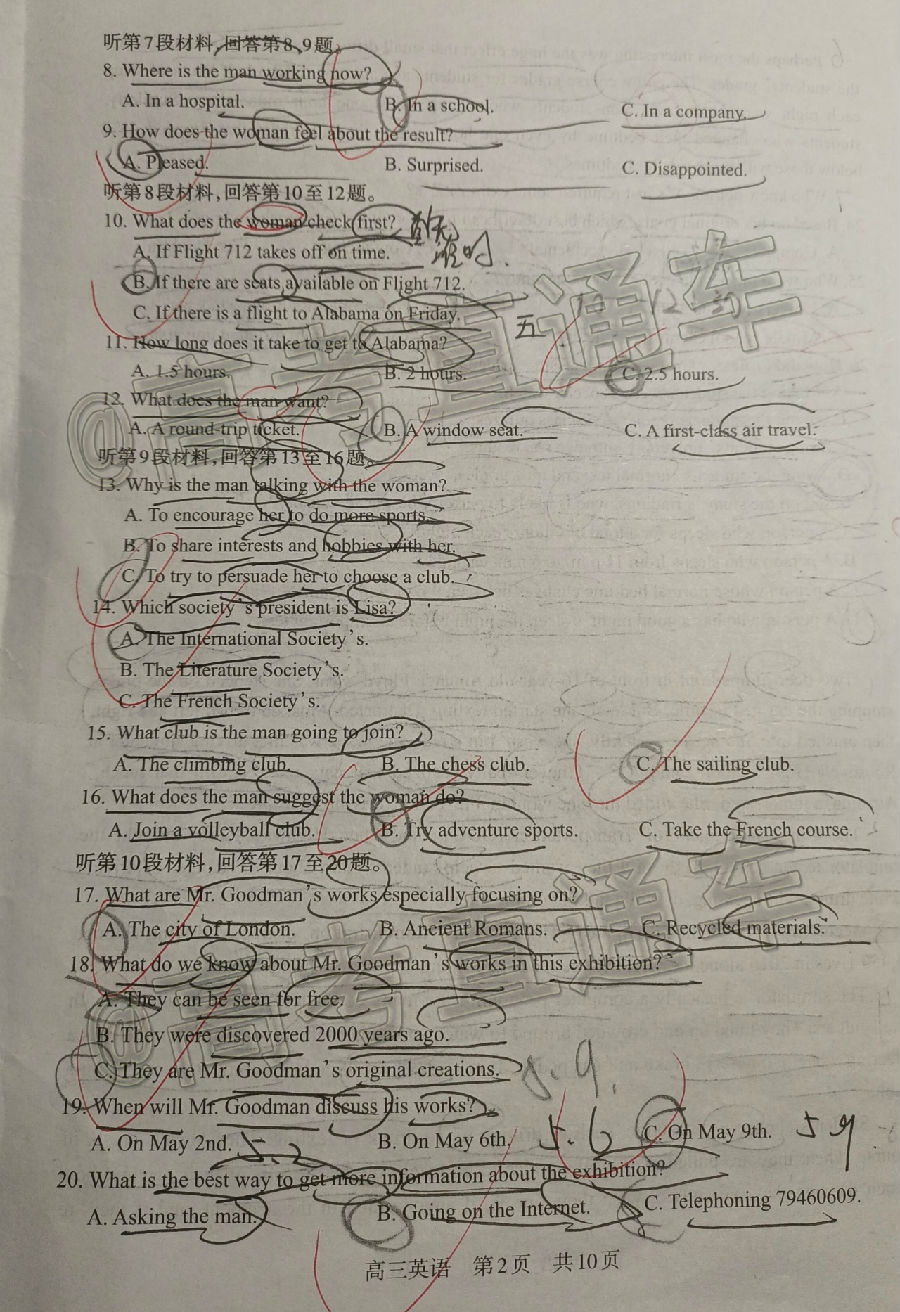 听第7段材料,回答第8、9题。
8. Where is the man working now?
A. In a hospital. B. In a school. C. In a company.
9. How does the woman feel about the result?
A. Pleased. B. Surprised. C. Disappointed.
听第8段材料,回答第10至12题。
10. What does the woman check first?
A. If Flight 712 takes off on time. 准时.
B. If there are seats available on Flight 712.
C. If there is a flight to Alabama on Friday. 五
11. How long does it take to get to Alabama?
A. 1.5 hours. B. 2 hours. C. 2.5 hours.
12. What does the man want?
A. A round-trip ticket. B. A window seat. C. A first-class air travel.
听第9段材料,回答第13至16题。
13. Why is the man talking with the woman?
A. To encourage her to do more sports.
B. To share interests and hobbies with her.
C. To try to persuade her to choose a club.
14. Which society's president is Lisa?
A. The International Society's.
B. The Literature Society's.
C. The French Society's.
15. What club is the man going to join?
A. The climbing club. B. The chess club. C. The sailing club.
16. What does the man suggest the woman do?
A. Join a volleyball club. B. Try adventure sports. C. Take the French course.
听第10段材料,回答第17至20题。
17. What are Mr. Goodman's works especially focusing on?
A. The city of London. B. Ancient Romans. C. Recycled materials.
18. What do we know about Mr. Goodman's works in this exhibition?
A. They can be seen for free.
B. They were discovered 2000 years ago.
C. They are Mr. Goodman's original creations. 5.9.
19. When will Mr. Goodman discuss his works?
A. On May 2nd. 5.2 B. On May 6th. 5.6 C. On May 9th. 5 9
20. What is the best way to get more information about the exhibition?
A. Asking the man. B. Going on the Internet. C. Telephoning 79460609.
高三英语 第2页 共10页
@高考直通车
@高考直通车